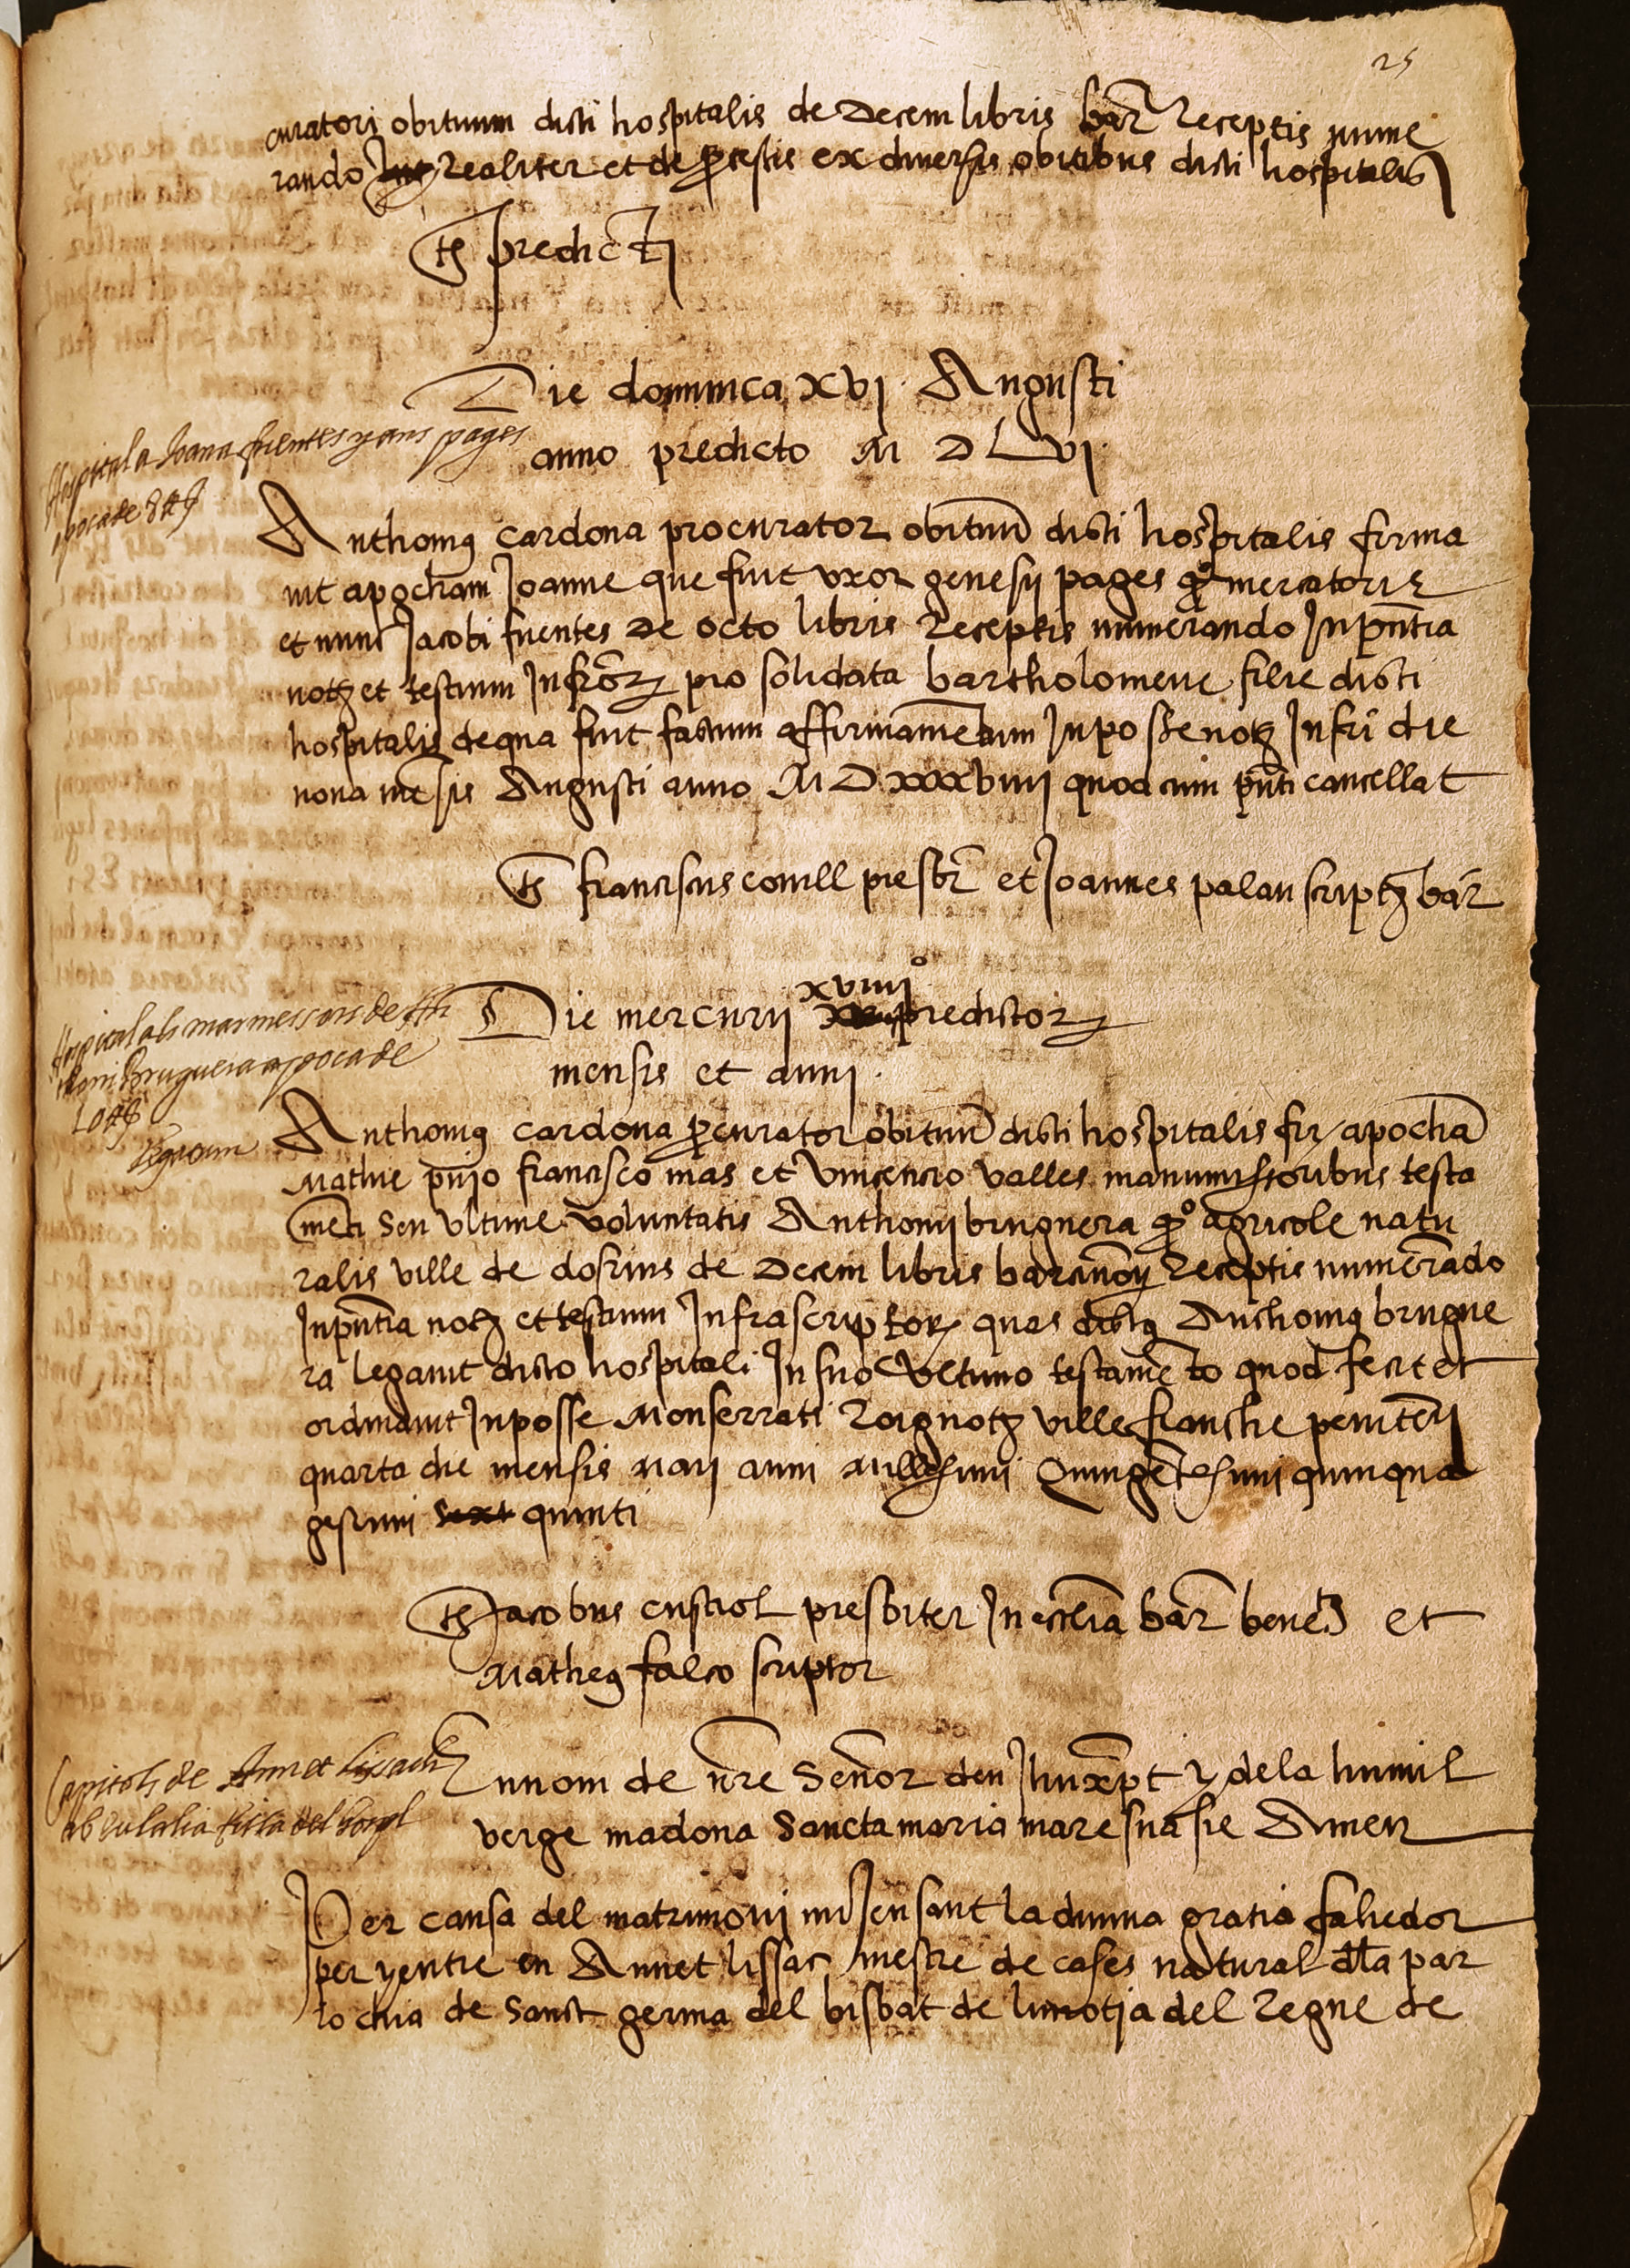 25
curatori obituum dicti hospitalis de Decem libris bar Receptis nume
rando realiter et de protestis ex diversis obitibus dicti hospitalis
ts predicti
Die dominica xvj Augusti
anno predicto M D Lvj
Hospital a Joana fuentes y ans pages
apoca de 8 ll
Anthonius cardona procurator obituum dicti hospitalis firma
vit apocham Joanne que fuit uxor genesii pages qo mercatoris
et nunc Jacobi fuentes De octo libris Receptis numerando Inpntia
noty et testium Infror pro solidata bartholomeue filie dicti
hospitalis de qua fuit factum affirmamentum Inposse noty Infri die
nona mensis Augusti anno M D xxxxviiij quod cum pnti cancellat
ts franciscus conill presbr et Joannes palau scripts bar
Die mercurii xviiijo predictor
mensis et anni
Hospital als marmessors de
Bruguera apoca de
10 ll
Anthonius cardona procurator obituum dicti hospitalis fir apocha
Mathie francisco mas et Vincencio valles manumissoribus testa
menti seu ultime voluntatis Anthonii bruguera qo agricole natu
ralis ville de dosrius de Decem libris barcinon Receptis numerado
Inpntia noty et testium Infrascriptor quas dictus Anthonius brugue
ra legavit dicto hospitali In suo ultimo testameto quod fecit et
ordinavit Inposse Monserrati Roig noty ville franche peniten
quarta die mensis Maij anni Millesimi Quingetesimi quinqua
gesimi sext quinti
ts Jacobus custiol presbiter In ecclia bar benets et
Matheus falco scriptor
Capitols de Annet lissach
ab Eulalia filla del hospl
En nom de nre senor deu Jhuxpt y de la humil
verge madona Sancta maria mare sua sie Amen
Per causa del matrimoni mijensant la divina gratia fahedor
per y entre en Annet lissac mestre de cases natural dla par
rochia de Sanct germa del bisbat de limotja del Regne de